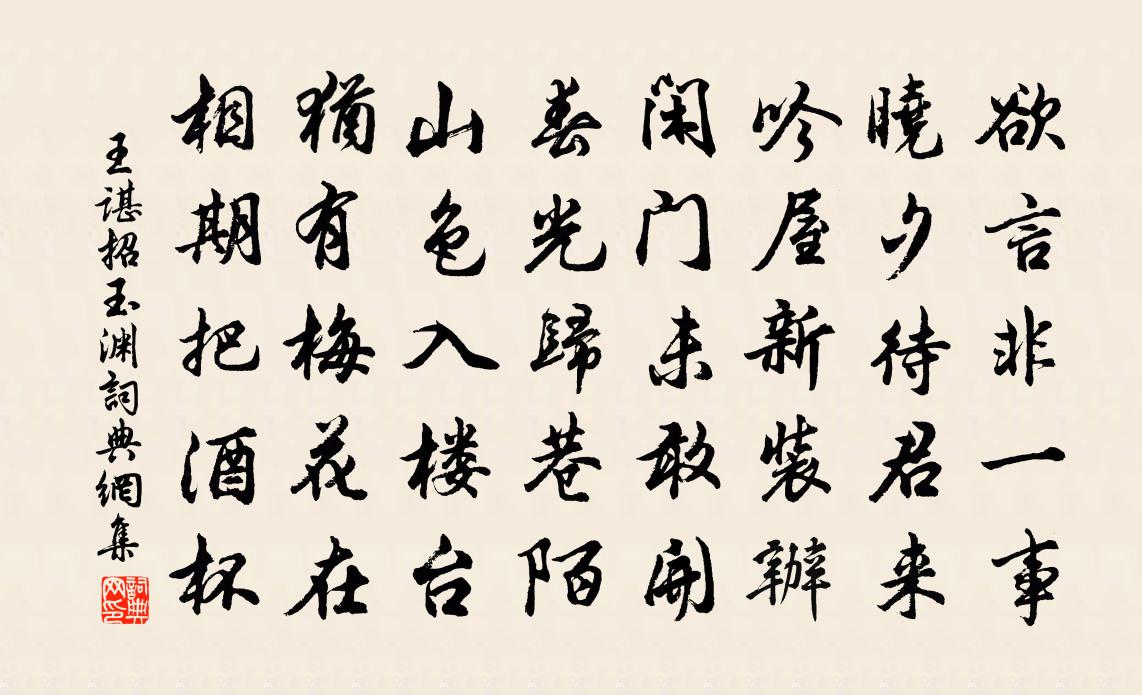 欲言非一事
曉夕待君来
吟屋新裝辦
闲门未敢開
春光歸巷陌
山色入楼台
猶有梅花在
相期把酒杯
王谌招玉渊詞典網集
詞典網印